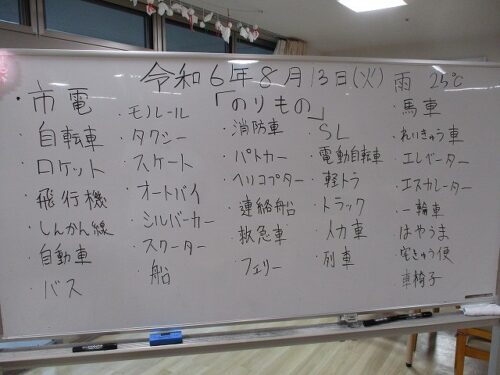 令和6年8月13日(火) 雨 25℃
「のりもの」
・市電
・自転車
・ロケット
・飛行機
・しんかん線
・自動車
・バス
・モノレール
・タクシー
・スケート
・オートバイ
・シルバーカー
・スクーター
・船
・消防車
・パトカー
・ヘリコプター
・連絡船
・救急車
・フェリー
・SL
・電動自転車
・軽トラ
・トラック
・人力車
・列車
・馬車
・れいきゅう車
・エレベーター
・エスカレーター
・一輪車
・はやうま
・宅きゅう便
・車椅子